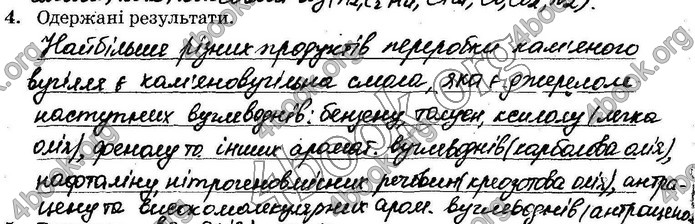 4. Одержані результати.
Найбільше різних продуктів переробки кам'яного
вугілля є кам'яновугільна смола, яка є джерелом
наступних вуглеводнів: бензену толуен, ксилолу (легка
олія), фенолу та інших аромат. вуглеводнів (карболова олія),
нафталіну, нітрогеновмісних речовин (креозотова олія), антра-
цену та високомолекулярних аром. вуглеводнів (антрацен
4book.org